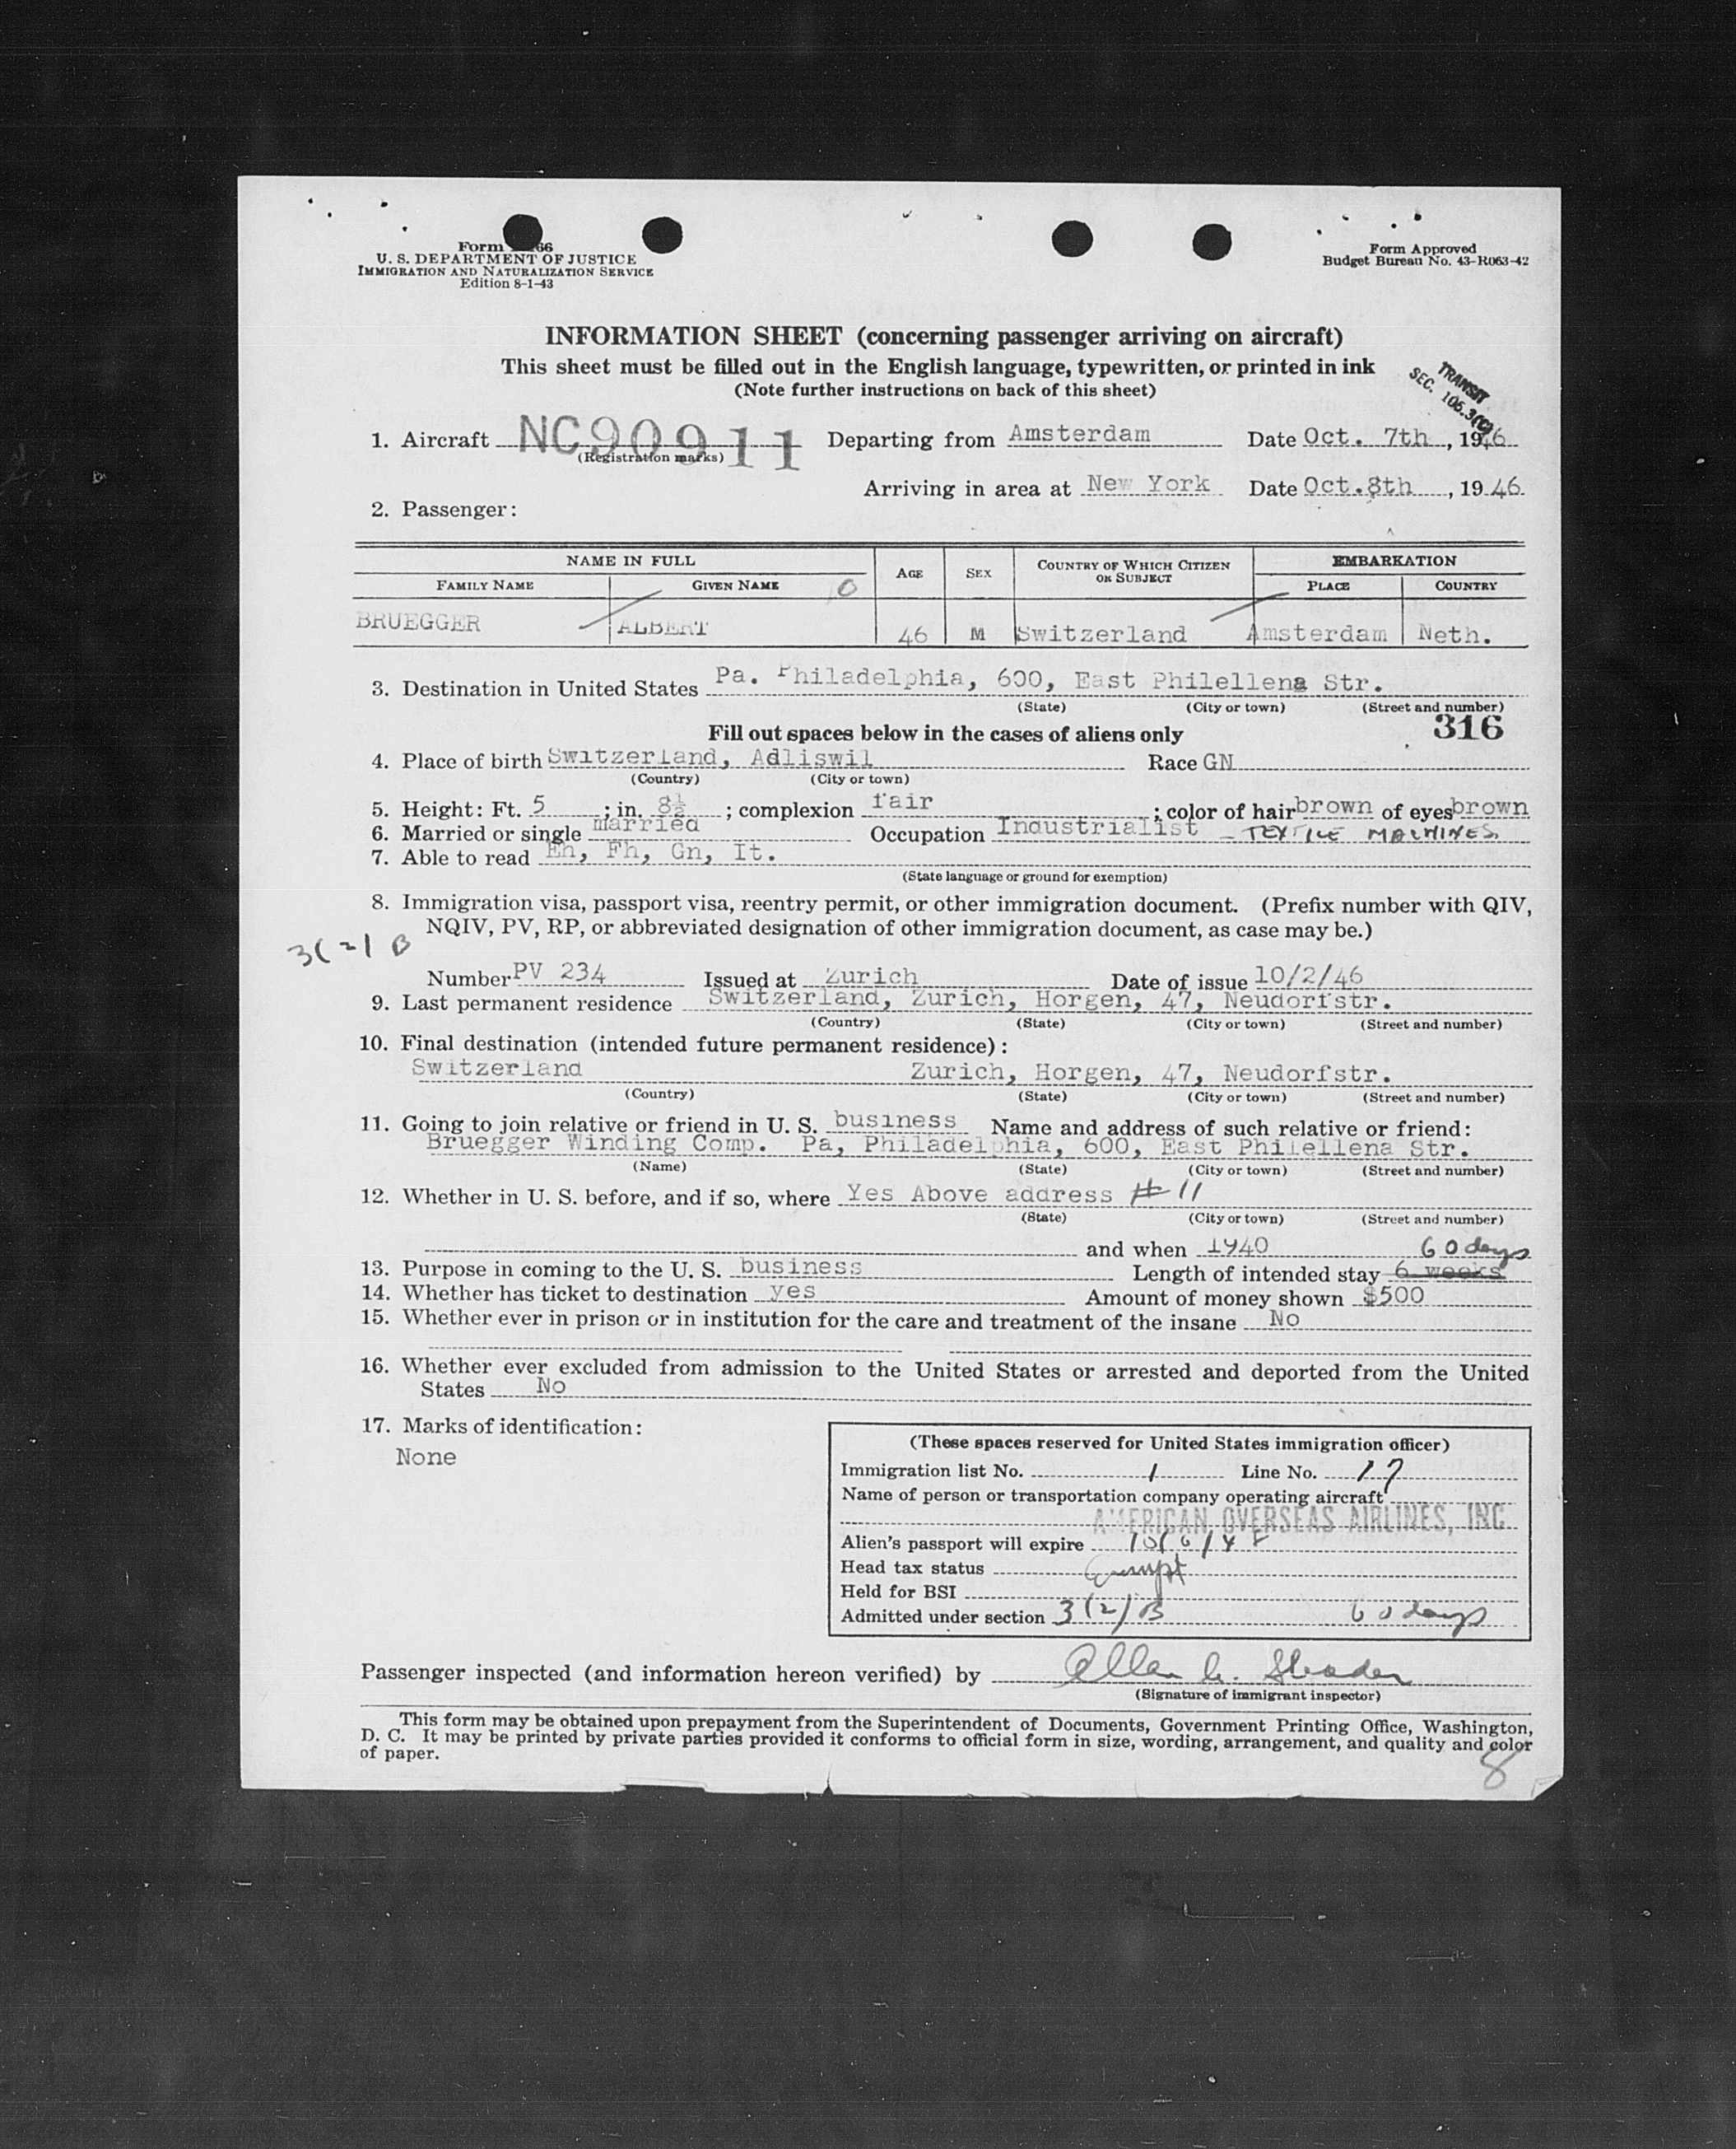 Form 66
U. S. DEPARTMENT OF JUSTICE
IMMIGRATION AND NATURALIZATION SERVICE
Edition 8-1-43
Form Approved
Budget Bureau No. 43-R063-42
INFORMATION SHEET (concerning passenger arriving on aircraft)
This sheet must be filled out in the English language, typewritten, or printed in ink
(Note further instructions on back of this sheet)
TRANSIT
SEC. 105.3
1. Aircraft NC90911 Departing from Amsterdam Date Oct. 7th, 1946
(Registration marks)
Arriving in area at New York Date Oct.8th, 1946
2. Passenger:
NAME IN FULL AGE SEX COUNTRY OF WHICH CITIZEN OR SUBJECT EMBARKATION
FAMILY NAME GIVEN NAME PLACE COUNTRY
BRUEGGER ALBERT 46 M Switzerland Amsterdam Neth.
3. Destination in United States Pa. Philadelphia, 600, East Philellena Str.
(State) (City or town) (Street and number)
Fill out spaces below in the cases of aliens only 316
4. Place of birth Switzerland, Adliswil Race GN
(Country) (City or town)
5. Height: Ft. 5 ; in. 8½ ; complexion fair ; color of hair brown of eyes brown
6. Married or single married Occupation Industrialist - TEXTILE MACHINES.
7. Able to read Eh, Fh, Gn, It.
(State language or ground for exemption)
8. Immigration visa, passport visa, reentry permit, or other immigration document. (Prefix number with QIV,
NQIV, PV, RP, or abbreviated designation of other immigration document, as case may be.)
3(2) B
Number PV 234 Issued at Zurich Date of issue 10/2/46
9. Last permanent residence Switzerland, Zurich, Horgen, 47, Neudorfstr.
(Country) (State) (City or town) (Street and number)
10. Final destination (intended future permanent residence):
Switzerland Zurich, Horgen, 47, Neudorfstr.
(Country) (State) (City or town) (Street and number)
11. Going to join relative or friend in U. S. business Name and address of such relative or friend:
Bruegger Winding Comp. Pa, Philadelphia, 600, East Philellena Str.
(Name) (State) (City or town) (Street and number)
12. Whether in U. S. before, and if so, where Yes Above address # 11
(State) (City or town) (Street and number)
and when 1940 60 days
13. Purpose in coming to the U. S. business Length of intended stay 6 weeks
14. Whether has ticket to destination yes Amount of money shown $500
15. Whether ever in prison or in institution for the care and treatment of the insane No
16. Whether ever excluded from admission to the United States or arrested and deported from the United
States No
17. Marks of identification:
None
(These spaces reserved for United States immigration officer)
Immigration list No. 1 Line No. 17
Name of person or transportation company operating aircraft
AMERICAN OVERSEAS AIRLINES, INC
Alien's passport will expire
Head tax status Exempt
Held for BSI
Admitted under section 3(2)B 60 days
Passenger inspected (and information hereon verified) by Allen
(Signature of immigrant inspector)
This form may be obtained upon prepayment from the Superintendent of Documents, Government Printing Office, Washington,
D. C. It may be printed by private parties provided it conforms to official form in size, wording, arrangement, and quality and color
of paper.
8